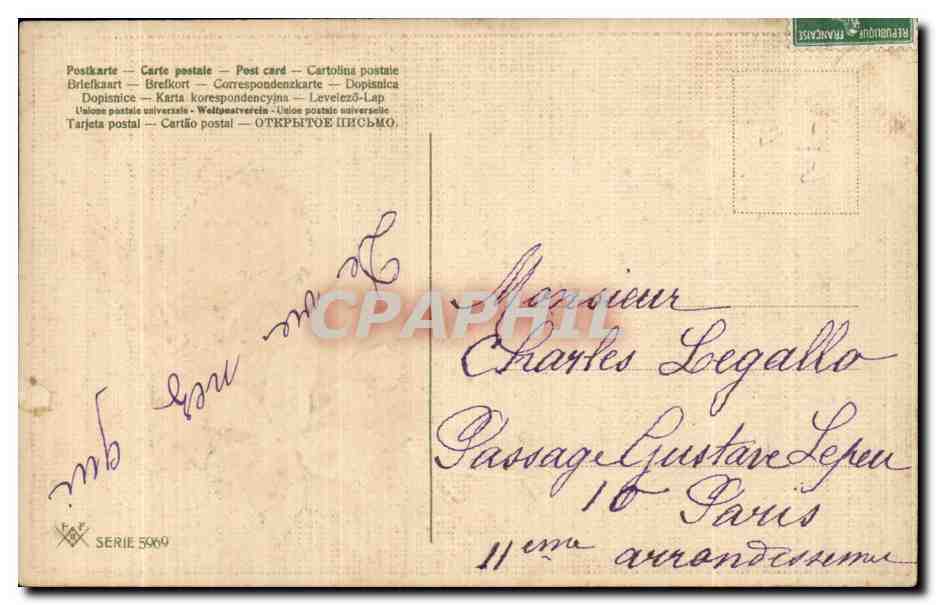 REPUBLIQUE FRANÇAISE
Postkarte — Carte postale — Post card — Cartolina postale
Briefkaart — Brefkort — Correspondenzkarte — Dopisnica
Dopisnice — Karta korespondencyjna — Levelező-Lap
Unione postale universale - Weltpostverein - Union postale universelle
Tarjeta postal — Cartão postal — ОТКРЫТОЕ ПИСЬМО.
De une
qui
CPAPHIL
Monsieur
Charles Legallo
Passage Gustave Lepeu
10
Paris
11eme arrondissement
SERIE 5969